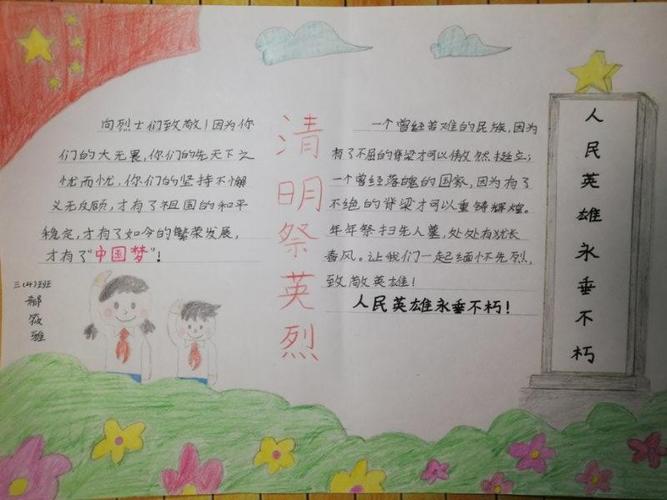 向烈士们致敬！因为你
们的大无畏，你们的先天下之
忧而忧，你们的坚持不懈
义无反顾，才有了祖国的和平
稳定，才有了如今的繁荣发展，
才有了“中国梦”！
三（4）班
郝
筱
雅
清
明
祭
英
烈
一个曾经苦难的民族，因为
有了不屈的脊梁才可以傲然挺立；
一个曾经落魄的国家，因为有了
不绝的脊梁才可以重铸辉煌。
年年祭扫先人墓，处处有犹长
春风。让我们一起缅怀先烈，
致敬英雄！
人民英雄永垂不朽！
人
民
英
雄
永
垂
不
朽